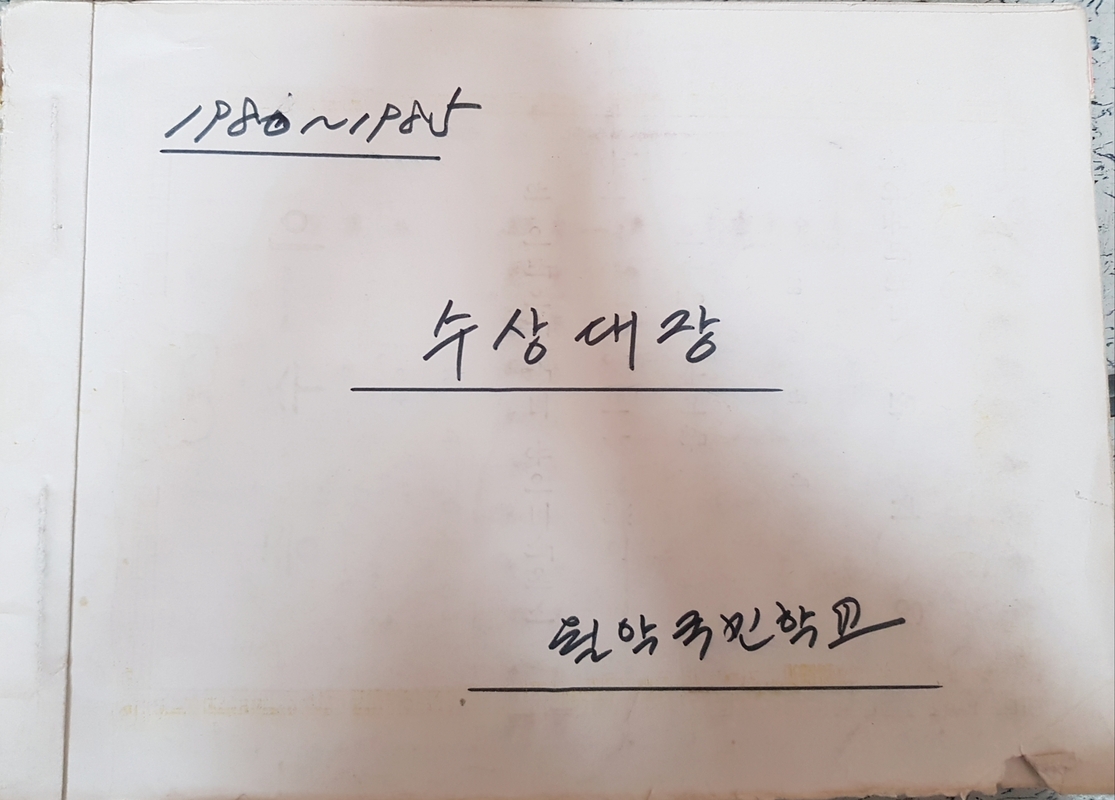 1980~1985
수상대장
월악국민학교